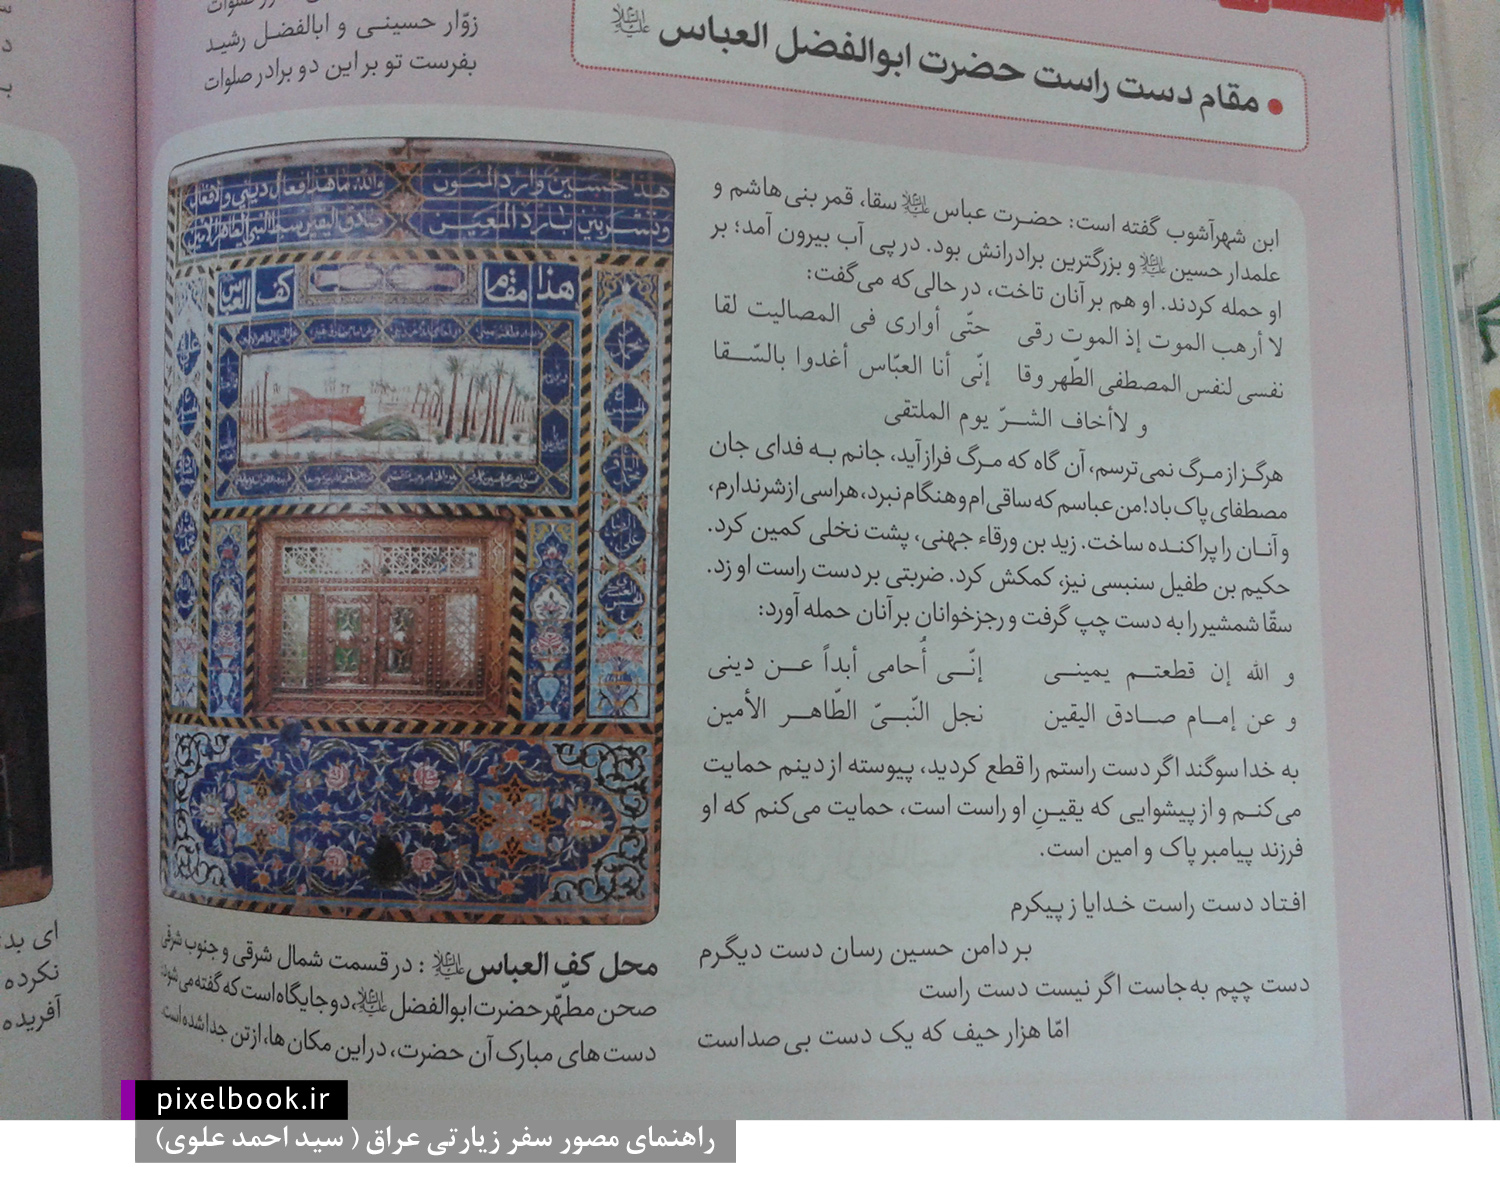 زوّار حسینی و ابالفضل رشید
بفرست تو بر این دو برادر صلوات
• مقام دست راست حضرت ابوالفضل العباس علیه‌السلام
ابن شهرآشوب گفته است: حضرت عباس علیه‌السلام سقا، قمر بنی‌هاشم و
علمدار حسین علیه‌السلام و بزرگترین برادرانش بود. در پی آب بیرون آمد؛ بر
او حمله کردند. او هم بر آنان تاخت، در حالی که می‌گفت:
لا أرهب الموت إذ الموت رقی حتّی أواری فی المصالیت لقا
نفسی لنفس المصطفی الطّهر وقا إنّی أنا العبّاس أغدوا بالسّقا
و لاأخاف الشرّ یوم الملتقی
هرگز از مرگ نمی‌ترسم، آن گاه که مرگ فراز آید، جانم به فدای جان
مصطفای پاک باد! من عباسم که ساقی‌ام و هنگام نبرد، هراسی از شر ندارم،
و آنان را پراکنده ساخت. زید بن ورقاء جهنی، پشت نخلی کمین کرد.
حکیم بن طفیل سنبسی نیز، کمکش کرد. ضربتی بر دست راست او زد.
سقّا شمشیر را به دست چپ گرفت و رجزخوانان بر آنان حمله آورد:
و الله إن قطعتم یمینی إنّی أُحامی أبداً عن دینی
و عن إمام صادق الیقین نجل النّبیّ الطّاهر الأمین
به خدا سوگند اگر دست راستم را قطع کردید، پیوسته از دینم حمایت
می‌کنم و از پیشوایی که یقینِ او راست است، حمایت می‌کنم که او
فرزند پیامبر پاک و امین است.
افتاد دست راست خدایا ز پیکرم
بر دامن حسین رسان دست دیگرم
دست چپم به جاست اگر نیست دست راست
امّا هزار حیف که یک دست بی‌صداست
هذا حسين وارد المنون والله ما هذا فعال ديني
وتشربين بارد المعين
هذا مقام كف العباس
محل کفِ العباس علیه‌السلام: در قسمت شمال شرقی و جنوب شرقی
صحن مطهّر حضرت ابوالفضل علیه‌السلام، دو جایگاه است که گفته می‌شود:
دست‌های مبارک آن حضرت، در این مکان‌ها، از تن جدا شده است.
ای بد
نکرده
آفریده
pixelbook.ir
راهنمای مصور سفر زیارتی عراق ( سید احمد علوی)